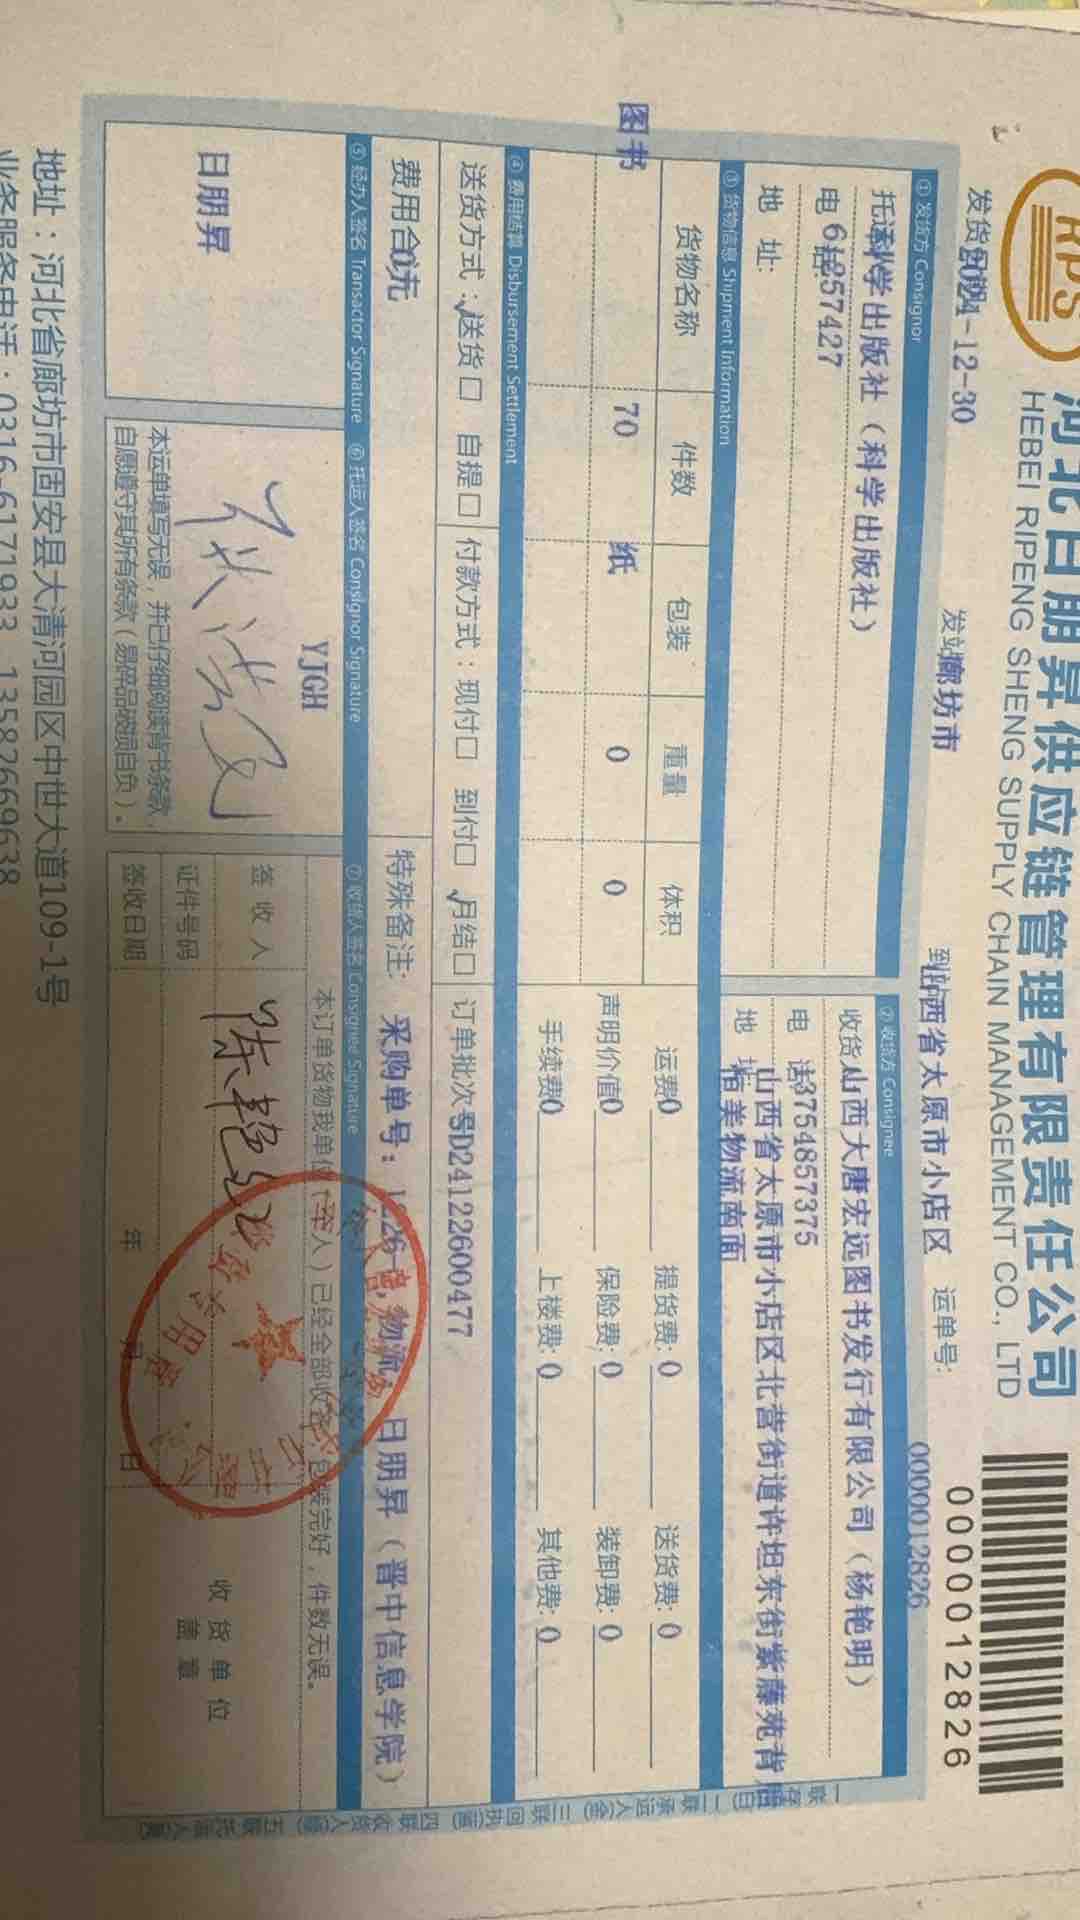 RPS
河北日朋昇供应链管理有限责任公司
HEBEI RIPENG SHENG SUPPLY CHAIN MANAGEMENT CO., LTD
发货日期 2024-12-30 发站 廊坊市 到站 山西省太原市小店区 运单号: 000012826
000012826
① 发货方 Consignor ② 收货方 Consignee
科学出版社（科学出版社） 收货 山西大唐宏远图书发行有限公司（杨艳明）
电话 61257427 电话 3754857375
地 址: 地址 山西省太原市小店区北营街道许坦东街紫藤苑背后
佰美物流南面
③ 货物信息 Shipment Information
货物名称 件数 包装 重量 体积 运费 0 提货费: 0 送货费: 0
图书 70 纸 0 0 声明价值 0 保险费: 0 装卸费: 0
手续费 0 上楼费: 0 其他费: 0
④ 费用结算 Disbursement Settlement
送货方式：√送货□ 自提□ 付款方式：现付□ 到付□ √月结□ 订单批次号 SD24122600477
费用合 0元 特殊备注: 采购单号： 物流 日朋昇（晋中信息学院）
⑤ 经办人签名 Transactor Signature ⑥ 托运人签名 Consignor Signature ⑦ 收货人签名 Consignee Signature
日朋昇
YJGH
本运单填写无误，并已仔细阅读背书条款，
自愿遵守其所有条款（易碎品破损自负）。
本订单货物我单位（本人）已经全部收到，包装完好，件数无误。
签 收 人
证件号码
签收日期 年 月 日
收货单位
盖 章
地址：河北省廊坊市固安县大清河园区中世大道109-1号
业务服务电话：0316-6171933 13582669638